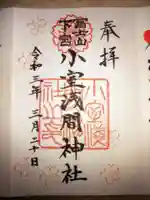 奉拝
富士山
下宮
小室浅間神社
令和三年三月二十日